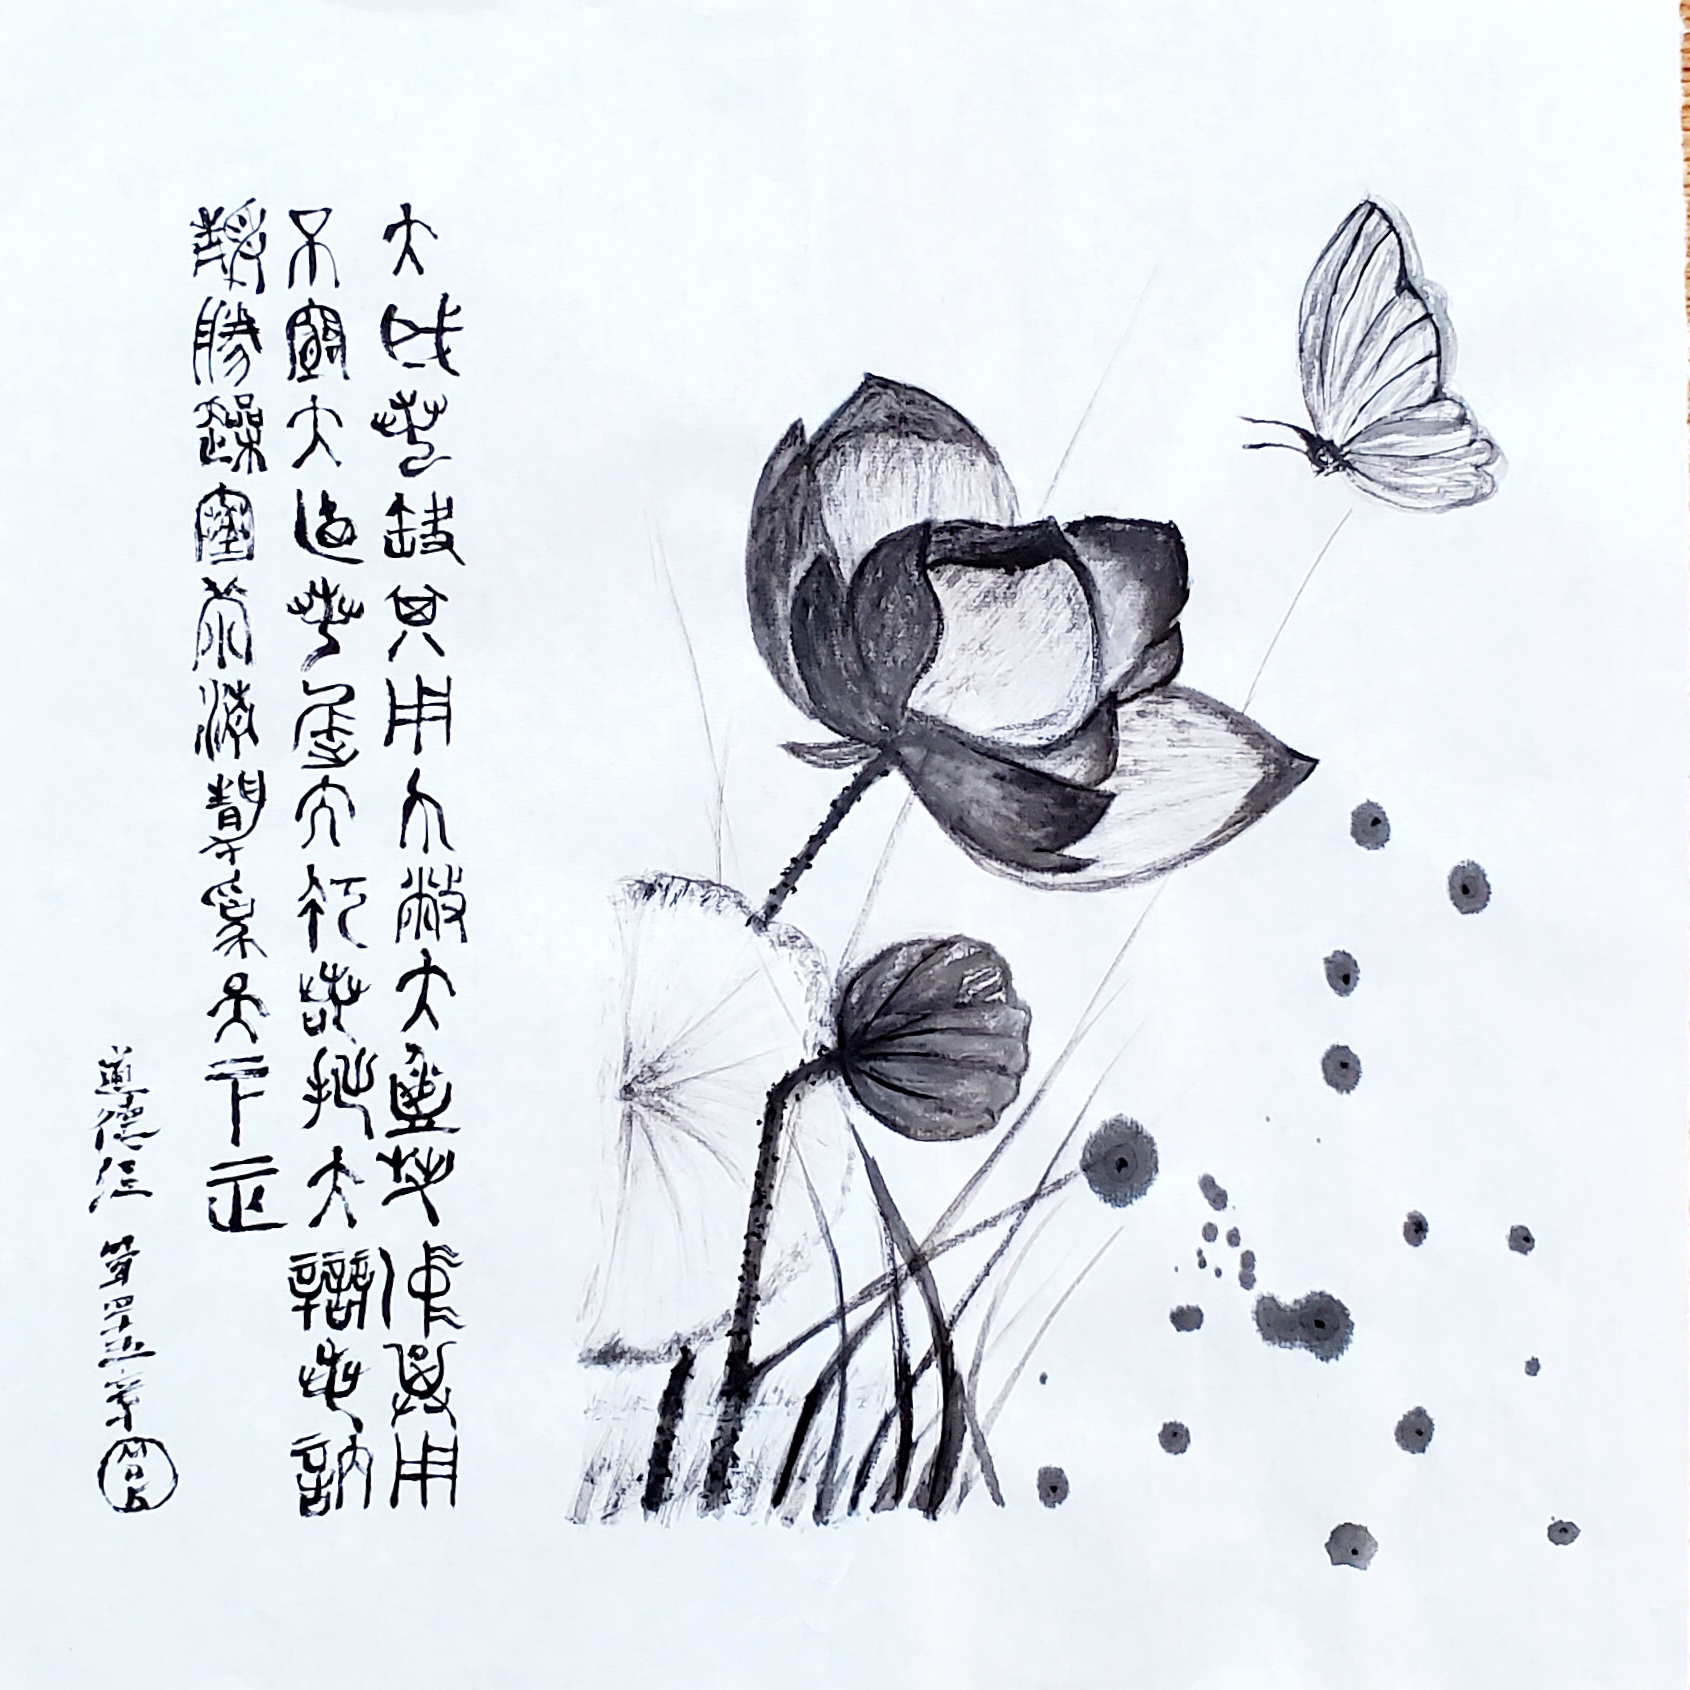 大成若缺其用不敝大盈若沖其用
不窮大直若屈大巧若拙大辯若訥
靜勝躁寒靜為天下正
道德經 第四十五章